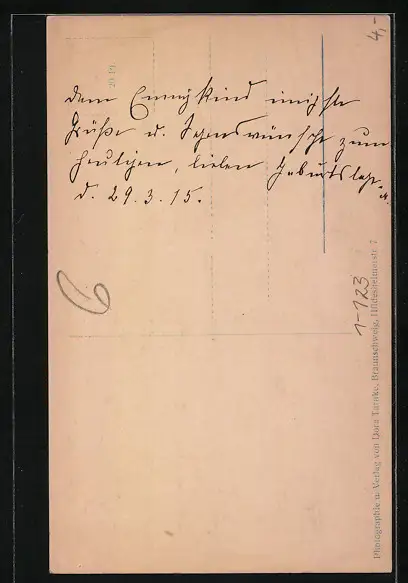 dem Emmykind innigste
Grüße u. Segenswünsche zum
heutigen, lieben Geburtstage
d. 29.3.15.
4,-
1-123
Photographie u. Verlag von Dora Tarnke, Braunschweig, Hildesheimerstr. 7